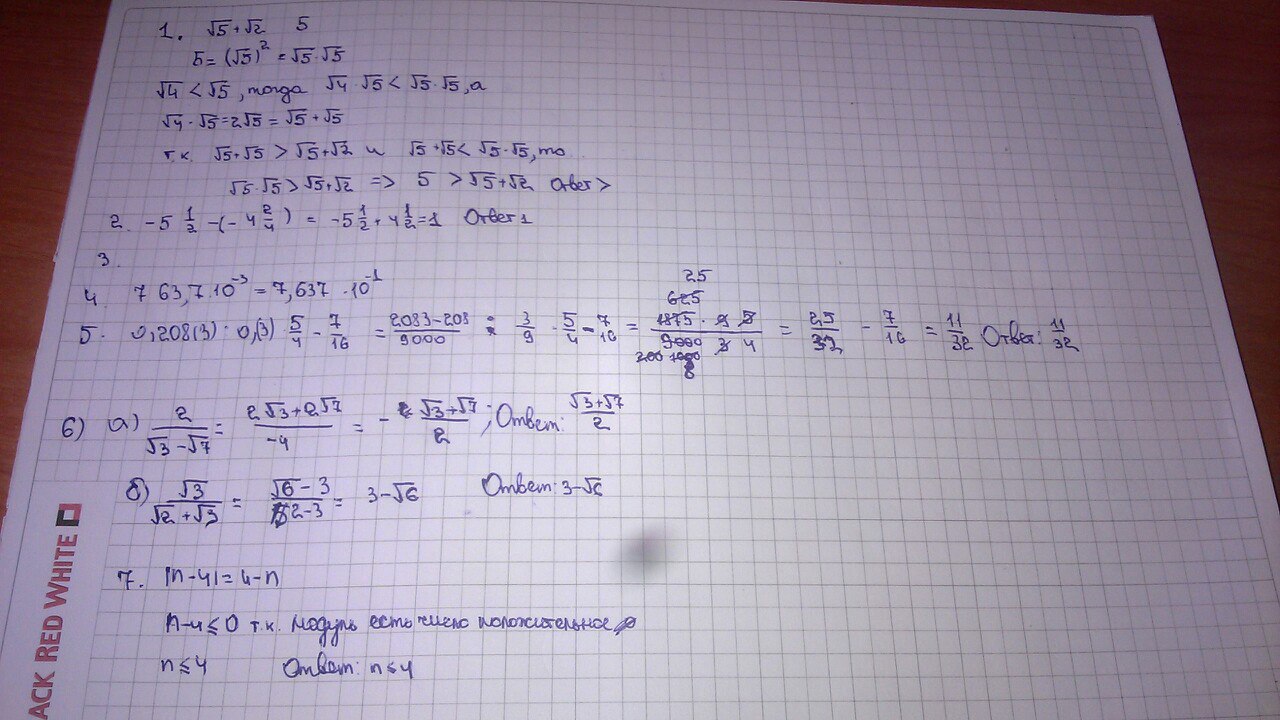 1. √5+√2 5
5=(√5)²=√5·√5
√4<√5, тогда √4·√5<√5·√5, а
√4·√5=2√5=√5+√5
т.к. √5+√5>√5+√2 и √5+√5<√5·√5, то
√5·√5>√5+√2 => 5>√5+√2 Ответ >
2. -5 1/2 -(-4 2/4) = -5 1/2 + 4 1/2 = 1 Ответ 1
3.
4. 763,7·10⁻³=7,637·10⁻¹
5. 0,208(3) : 0,(3) · 5/4 - 7/16 = (2083-208)/9000 : 3/9 · 5/4 - 7/16 = (1875·9·5)/(9000·3·4) = 25/32 - 7/16 = 11/32 Ответ: 11/32
25
625
200 1000
8
6) а) 2/(√3-√7) = (2√3+2√7)/(-4) = -(√3+√7)/2; Ответ: (√3+√7)/2
б) √3/(√2+√3) = (√6-3)/(2-3) = 3-√6 Ответ: 3-√6
7. |n-4|=4-n
n-4≤0 т.к. модуль есть число положительное
n≤4 Ответ: n≤4
ACK RED WHITE